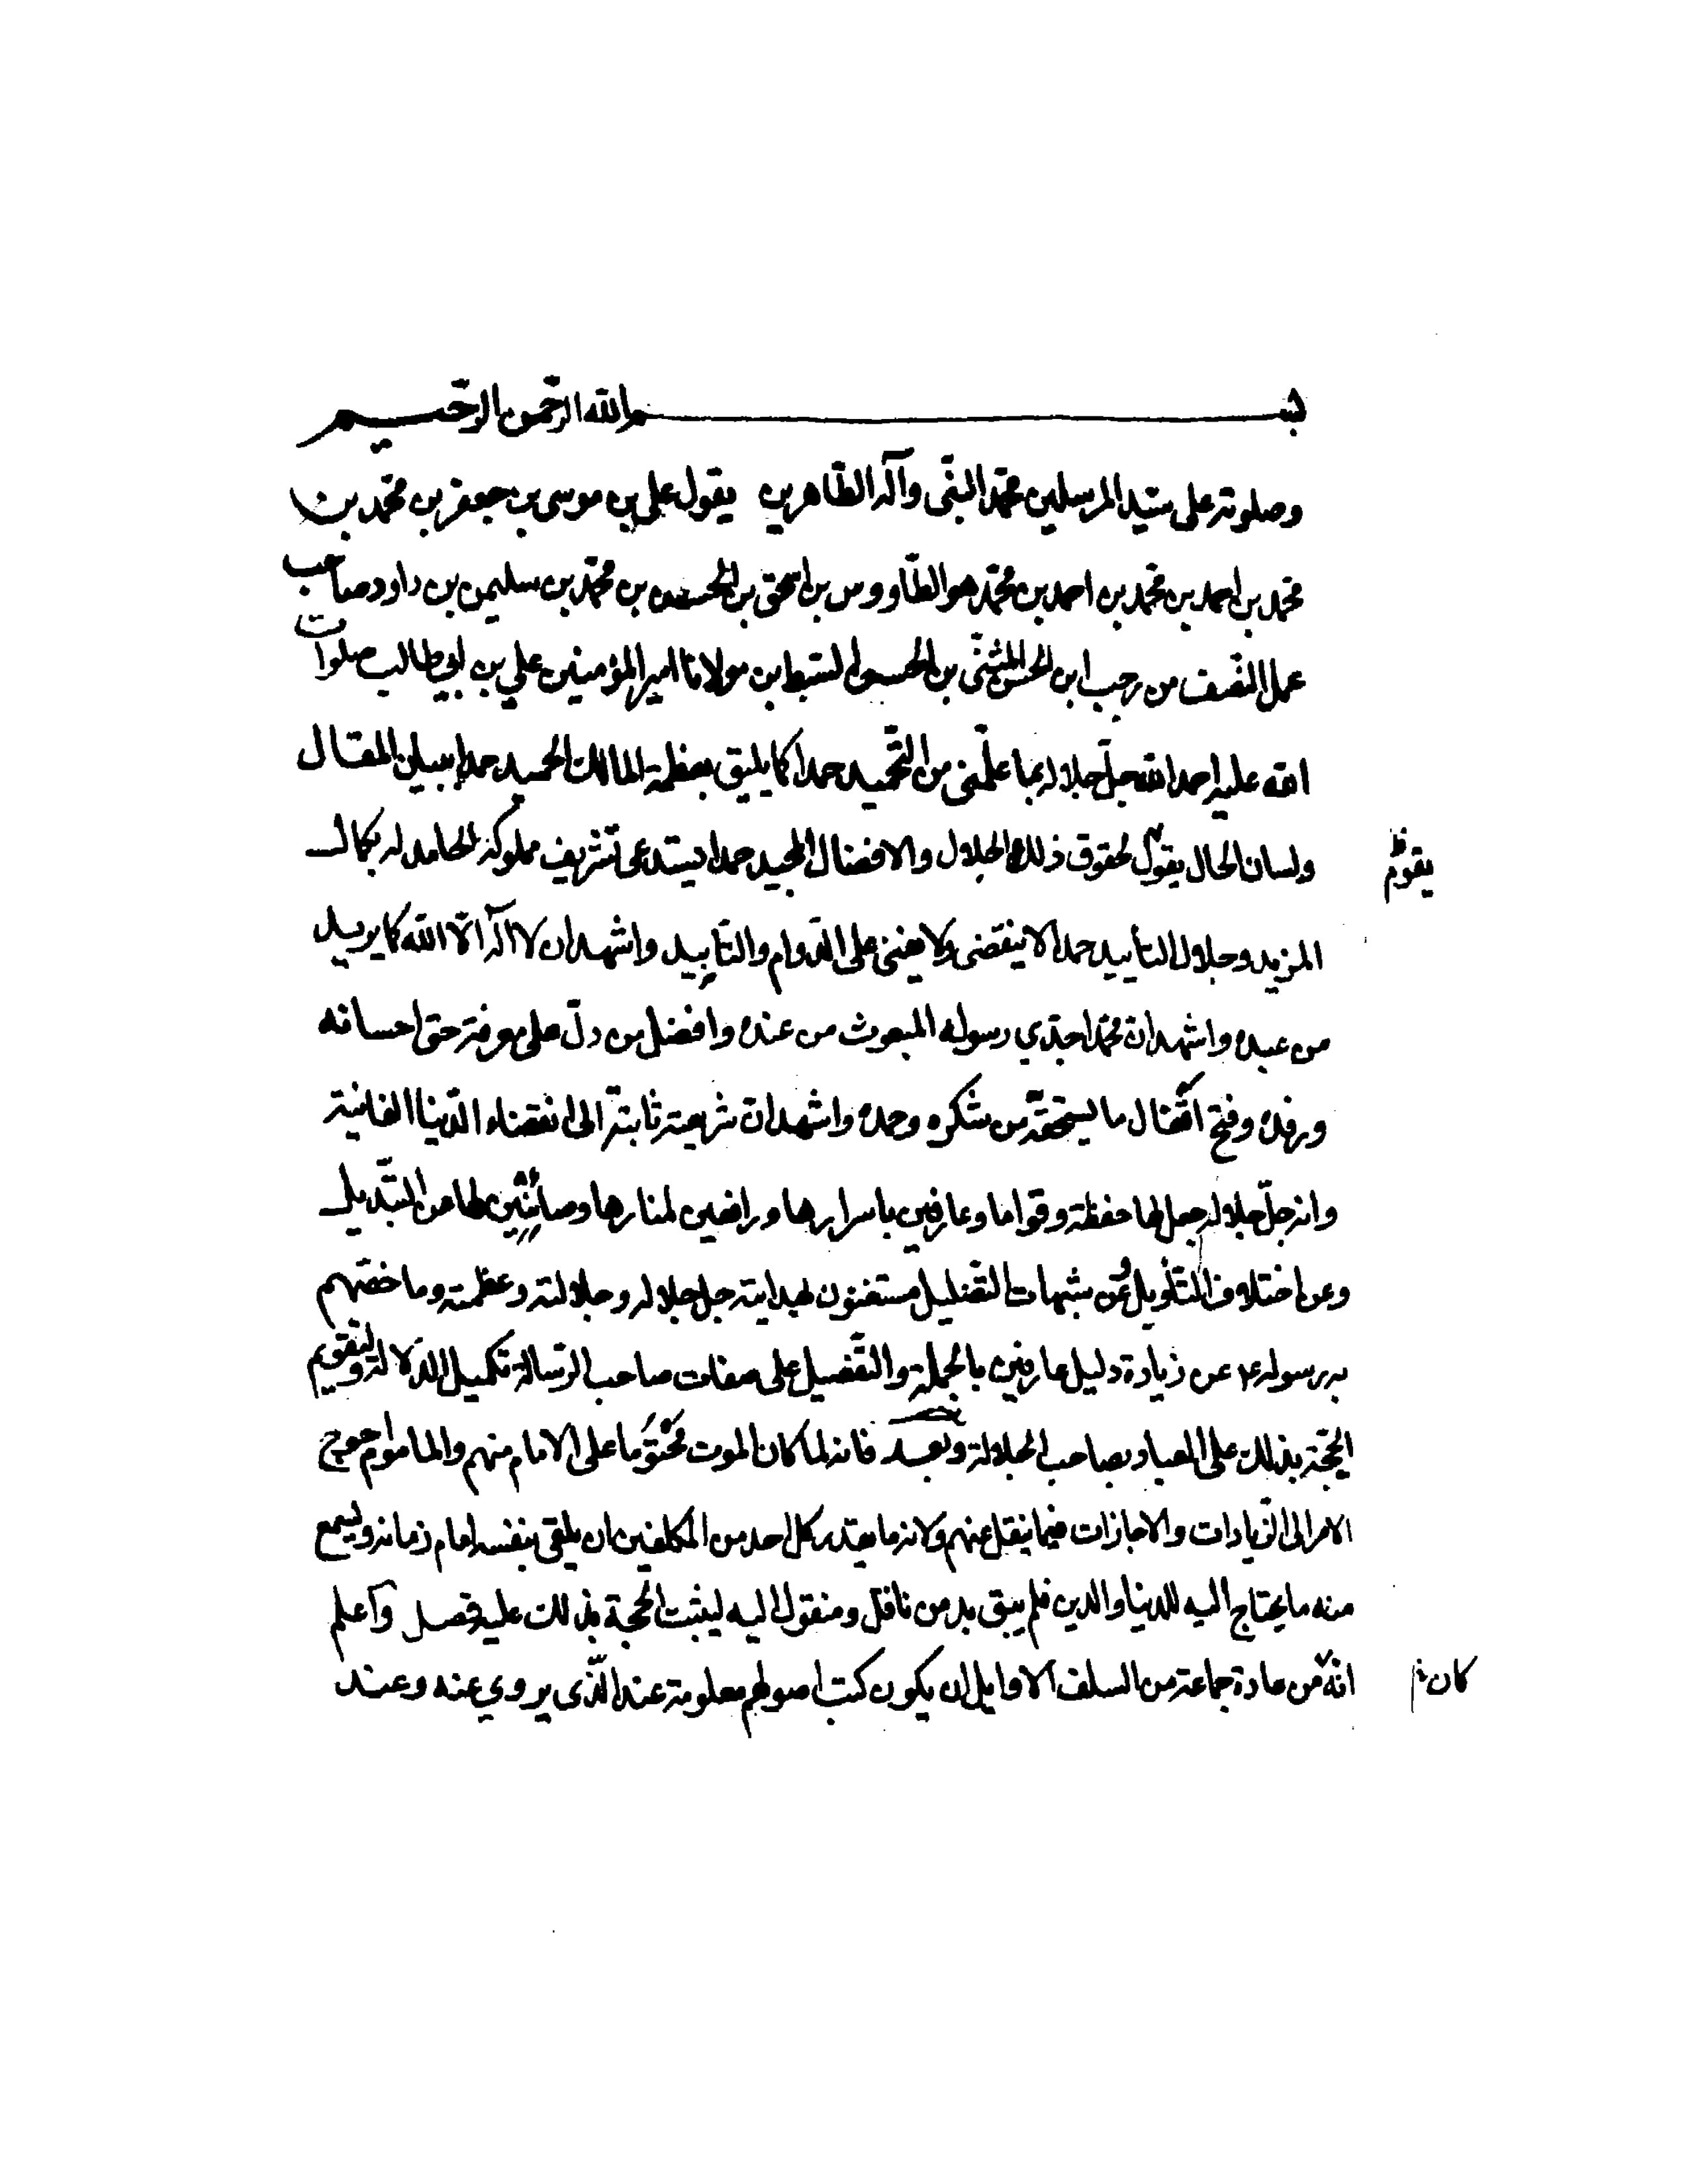 بسم الله الرحمن الرحيم
وصلوته على سيّد المرسلين محمّد النبّى وآله الطّاهرين يقول على بن موسى بن جعفر بن محمّد بن
محمّد بن احمد بن محمّد بن احمد بن محمّد هو الطّاووس بن اسحق بن الحسن بن محمّد بن سليمن بن داود صاحب
عمل النّصف من رجب ابن الحسن المثنّى بن الحسن السّبط ابن مولانا امير المؤمنين علي بن ابيطالب صلوات
الله عليه احمد الله جلّ جلاله بما علّمنى من التّحميد حمدا كما يليق بعظمة المالك الحميد حمدا بلسان المقال
ولسان الحال يقول لحقوق ذلك الجلال والافضال المجيد حمدا يستدعى تشريف مملوكه الحامد له بكمال
يقوم ظ
المزيد وجلال التأييد حمدا لا ينقضى ولا يفنى على الدّوام والتّابيد واشهد ان لا اله الّا الله كما يريد
من عبيده واشهد انّ محمّدا جدّي رسوله المبعوث من عنده وافضل من دلّ على معرفة حق احسانه
ورفده وفتح اقفال ما يستحقّه من شكره وحمده واشهد انّ شريعته ثابتة الى انقضاء الدّينا الفانية
وانه جلّ جلاله جعل لها حفظة وقواما وعارفين باسرارها ورافعين لمنارها وصائنين لها من التّبديل
وعن اختلاف التّأويل وعن شبهات التّضليل مستغنون بهدايته جل جلاله وجلالته وعظمته وما خصّهم
به برسوله ع عن زيادة دليل عارفين بالجملة والتّفصيل على صفات صاحب الرّسالة تكميل الدّلالة ولتقويم
الحجّة بذلك على العباد بصاحب الجلالة وبعد فانه لما كان الموت محتوما على الامام منهم والماموم احوج
الامر الى الزّيادات والاجازات فيما ينقل عنهم ولانه ما يقدر كل احد من المكلفين ان يلقى بنفسه امام زمانه ويسمع
منه ما يحتاج اليه للدنيا والدين فلم يبق بد من ناقل ومنقول اليه ليثبت الحجة بذلك عليه فصل واعلم
انّه من عادة جماعة من السلف الاوايل ان يكون كتب اصولهم معلومة عند الّذى يروي عنه وعند
كان